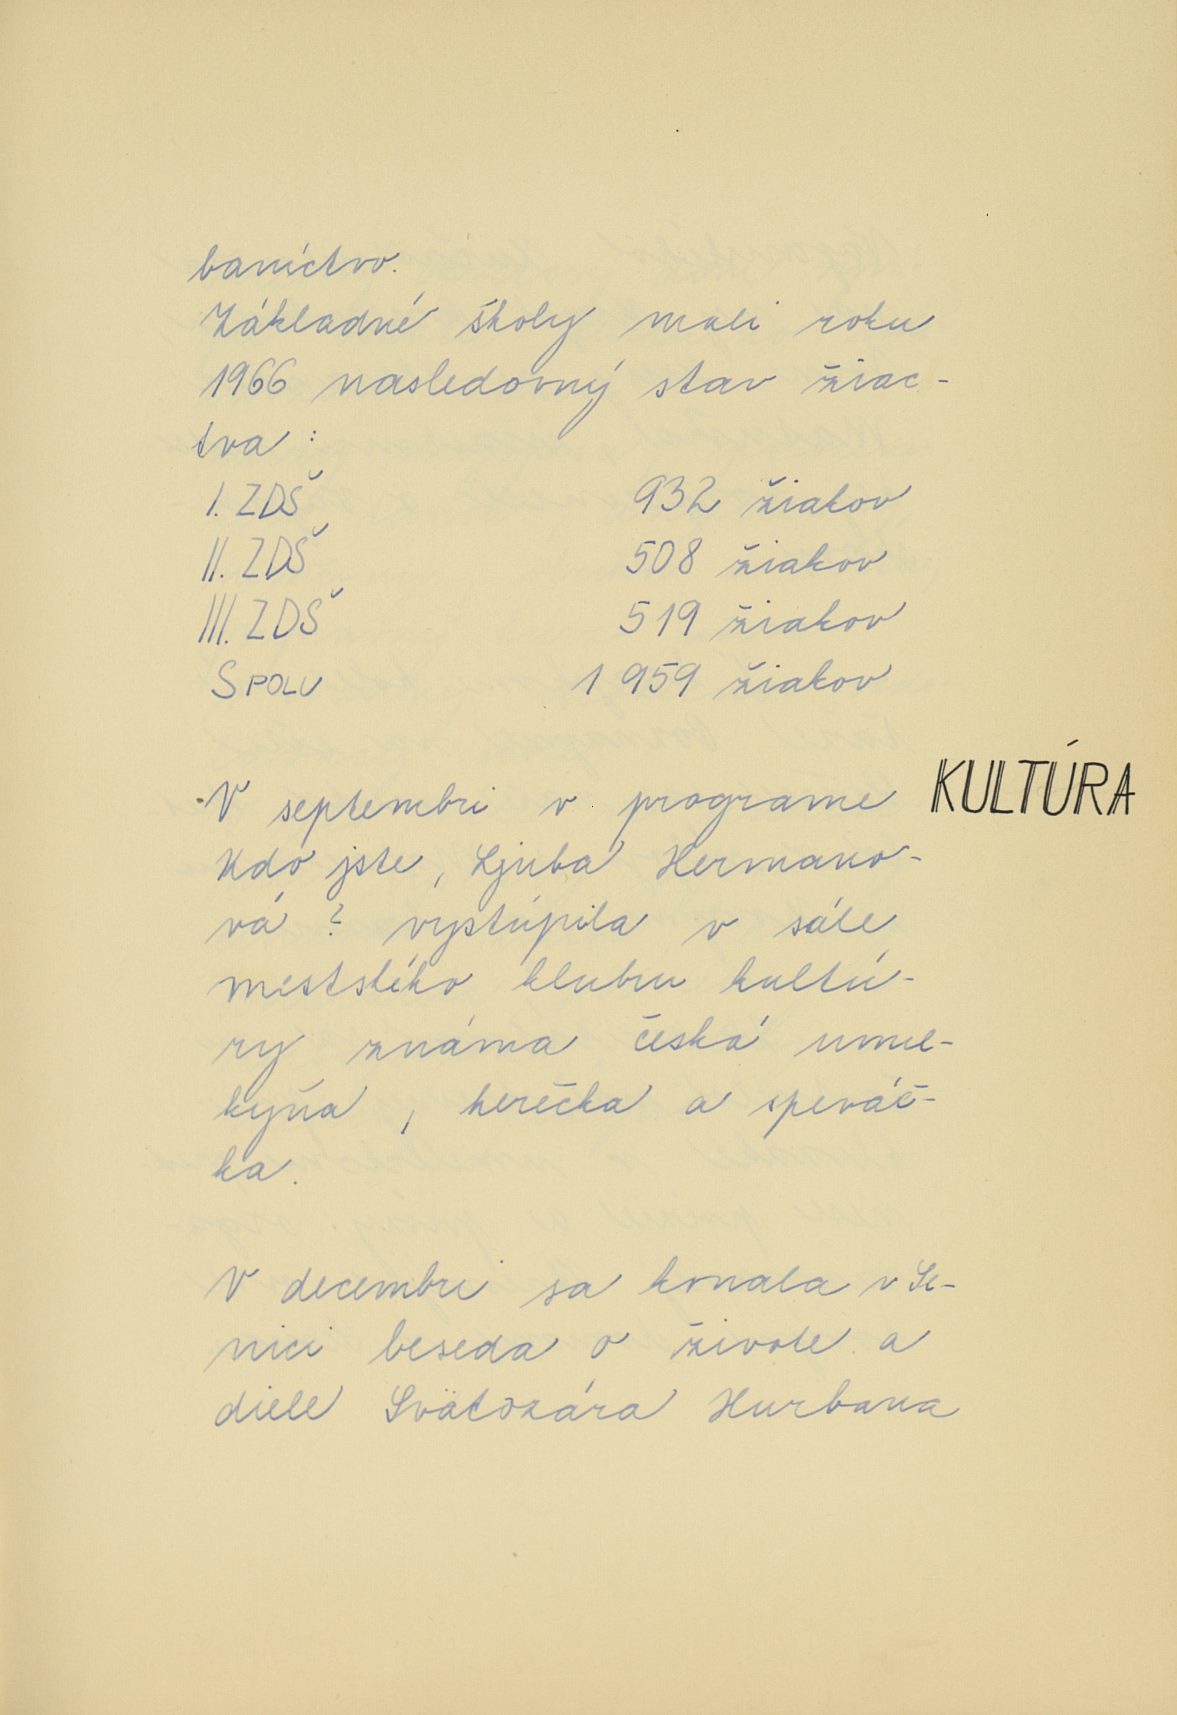 baníctvo.
Základné školy mali roku
1966 nasledovný stav žiac-
tva :
I. ZDŠ 932 žiakov
II. ZDŠ 508 žiakov
III. ZDŠ 519 žiakov
SPOLU 1 959 žiakov
KULTÚRA
V septembri v programe
Kdo jste, Ljuba Hermano-
vá ? vystúpila v sále
mestského klubu kultú-
ry známa česká umel-
kyňa, herečka a speváč-
ka.
V decembri sa konala v Se-
nici beseda o živote a
diele Svätozára Hurbana